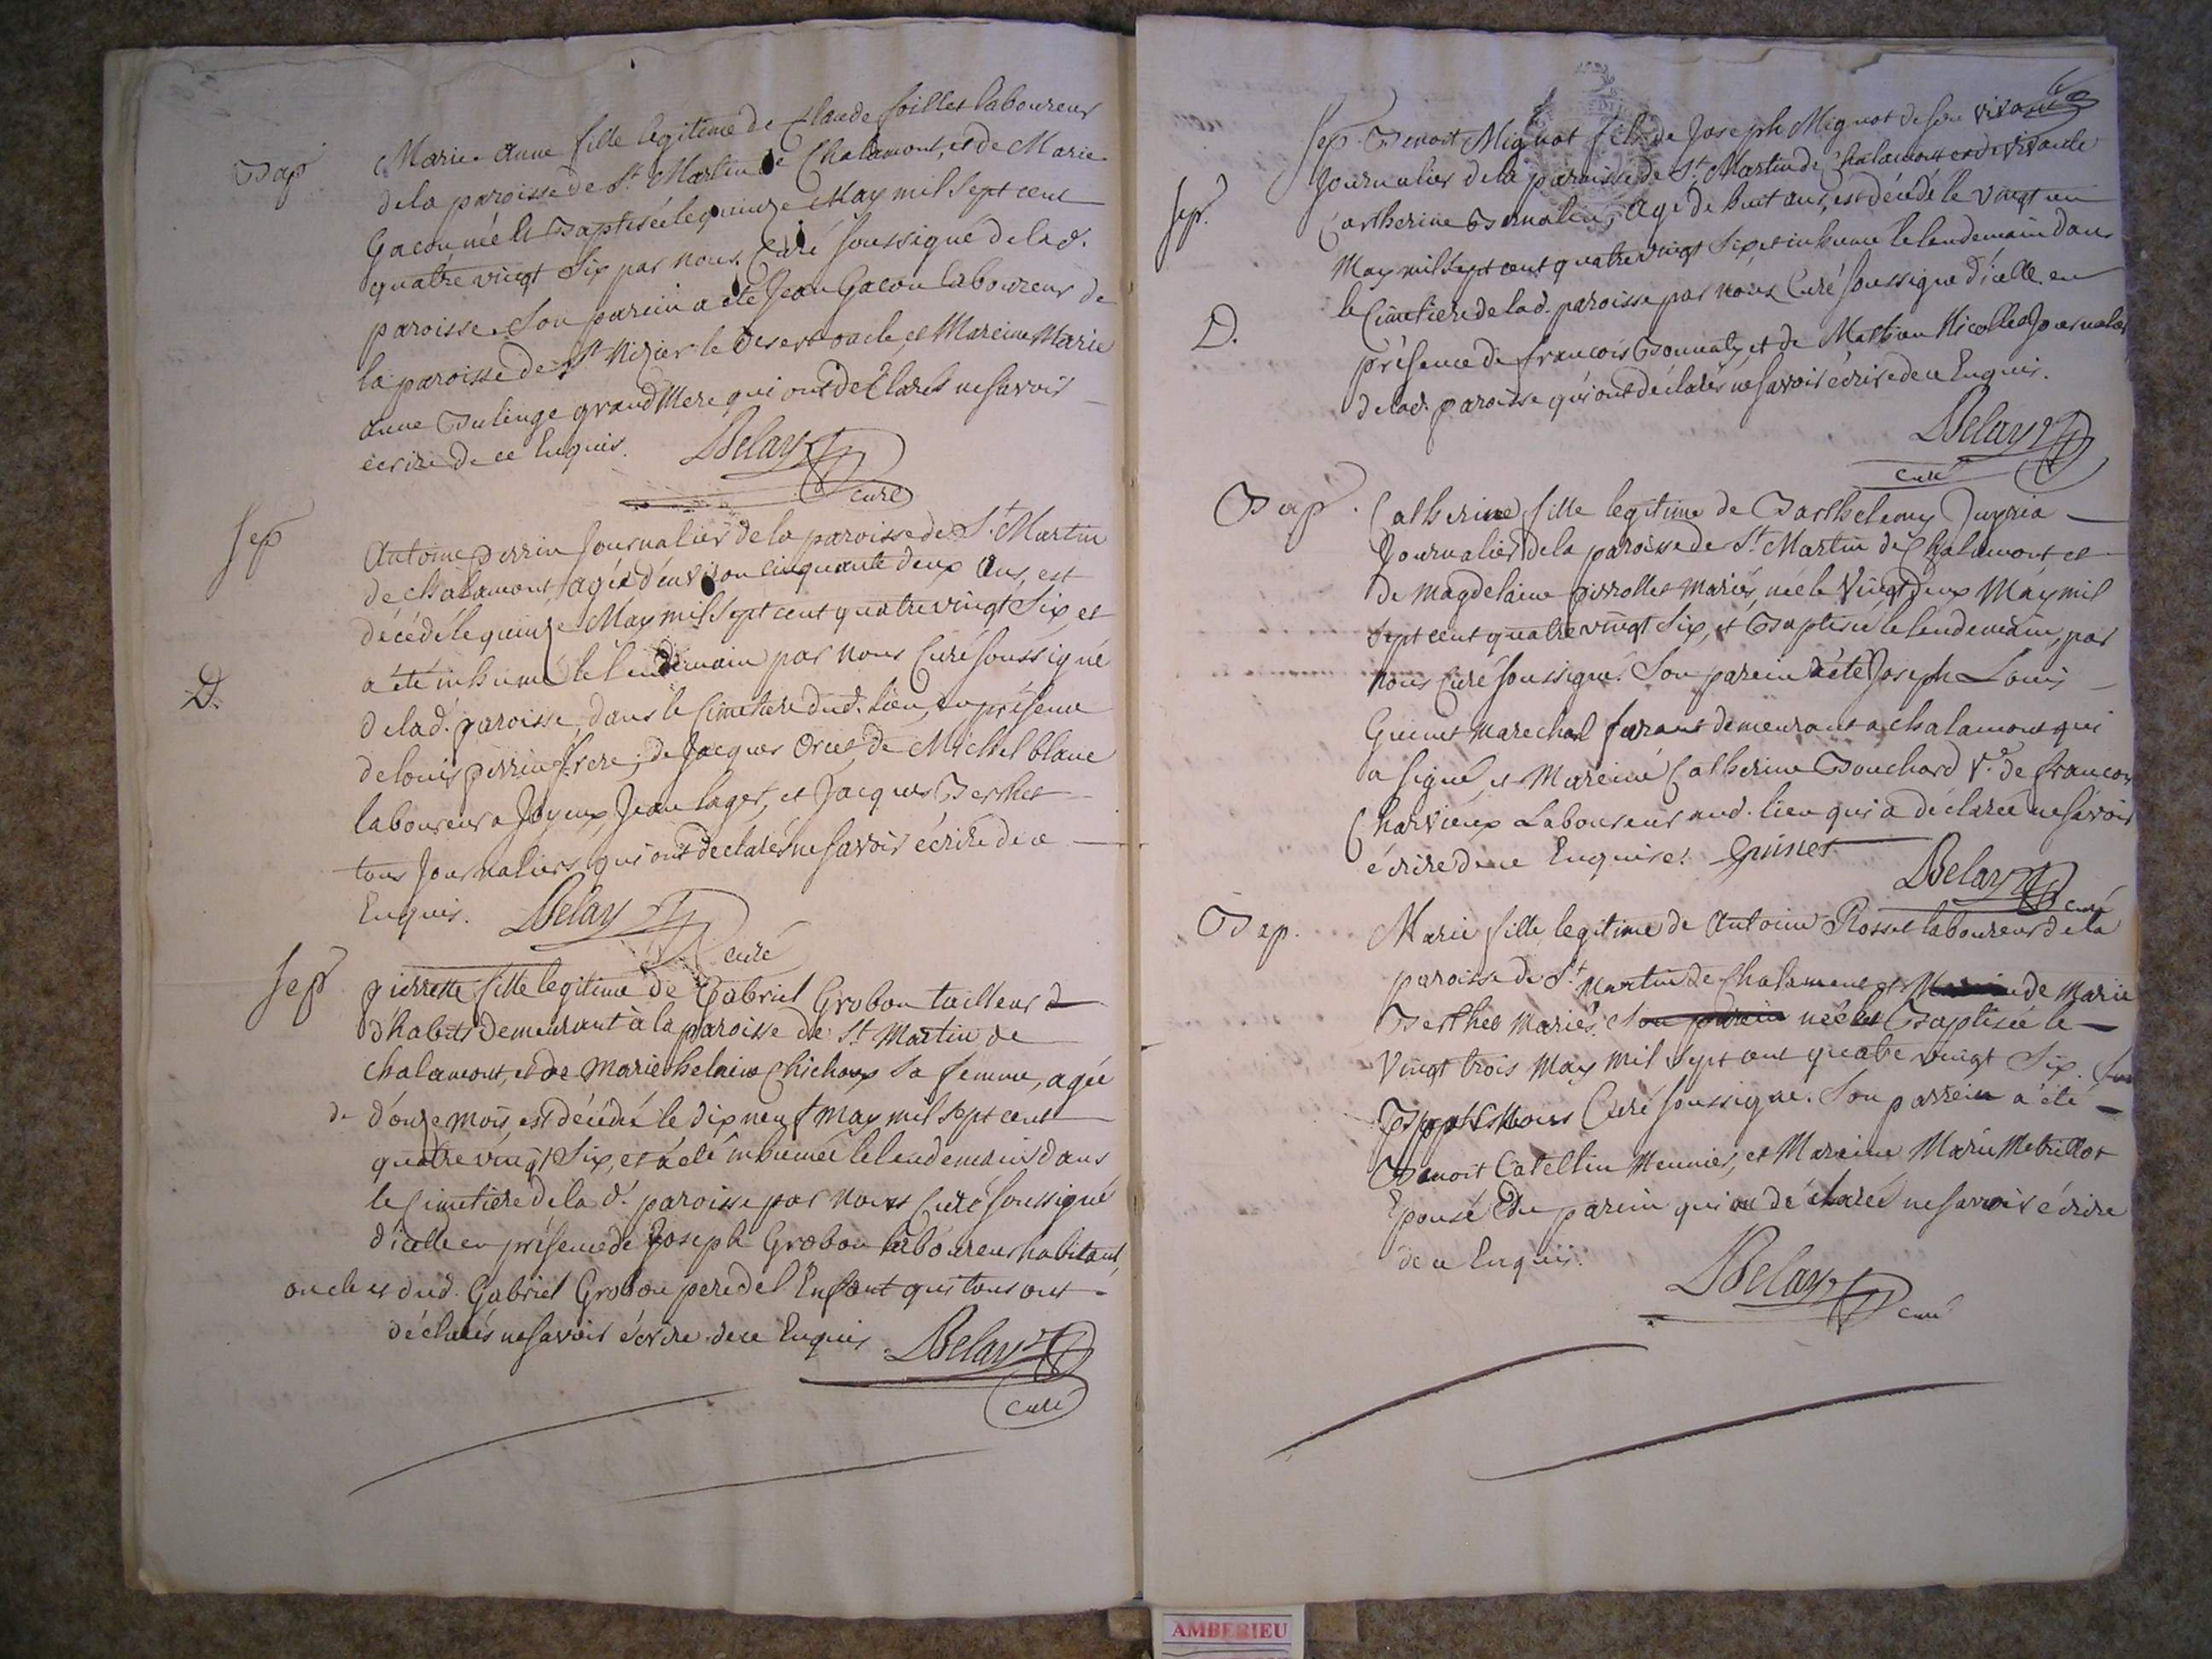 Bap
Marie-anne fille legitime de Claude foillet laboureur
de la paroisse de St Martin de Chalamont, et de Marie
Gacon, née et Baptisée le quinze May mil sept cent
quatre vingt Six par nous Curé soussigné de lad.
paroisse. Son parein a été Jean Gacon laboureur de
la paroisse de St Nizier le Desert oncle, et Mareine Marie
anne Bulinge grand Mere qui ont declarés ne savoir
écrire de ce Enquis. Belay
curé
Sep
Antoine perrin Journalier de la paroisse de St Martin
de chalamont, agée d'environ cinquante deux ans, est
décédé le quinze May mil Sept cent quatre vingt Six, et
a été inhumé le lendemain par nous Curé soussigné
D.
de lad. paroisse, dans le Cimetiere dud. lieu, en présence
de louis perrin frere, de Jacques de Michel blanc
laboureur a Joyeux, Jean laget, et Jacques Berthet
tous Journaliers qui ont declarés ne savoir écrire de ce
Enquis. Belay
curé
Sep
pierrette fille legitime de Gabriel Grobon tailleur d
d'habits demeurant à la paroisse de St Martin de
chalamont, et de Marie helaine Chichoux Sa femme, agée
de d'onze mois, est décédée le dix neuf May mil Sept cent
quatre vingt Six, et a été inhumée le lendemain dans
le Cimetiere de la d. paroisse par nous Curé soussigné
d'icelle en présence de Joseph Grobon laboureur habitant,
oncle et dud. Gabriel Grobon pere de l'Enfant qui tous ont
déclarés ne savoir écrire de ce Enquis Belay
curé
Sep. Benoit Mignot fils de Joseph Mignot de son vivant
Journalier de la paroisse de St Martin de Chalamont et de vivante
Sep.
Catherine Bernalin, Agé de huit ans, est décédé le vingt un
May mil Sept cent quatre vingt Six, et inhumé le lendemain dans
le Cimetiere de lad. paroisse par nous Curé soussigné d'icelle en
D.
présence de francois Bonnat, et de Mathieu Nicollet Journalier
de lad. paroisse qui ont déclarés ne savoir écrire de ce Enquis.
Belay
curé
Bap.
Catherine, fille legitime de Barthelemy Juyria
Journalier de la paroisse de St Martin de Chalamont, et
de Magdelaine pirrollet Mariés, née le Vingt deux May mil
Sept cent quatre vingt Six, et Baptisée le lendemain, par
nous Curé soussigné. Son parein a été Joseph Louis
Guinet Marechal ferant demeurant a chalamont qui
a signé, et Mareine Catherine Bouchard Ve. de francois
Charvieux Laboureur aud. lieu qui a déclarée ne savoir
écrire de ce Enquise. Guinet
Belay
curé
Bap.
Marie fille legitime de Antoine Rosset laboureur de la
paroisse de St Martin de Chalamont et de Marie
Berthet Mariés, Son parein née et Baptisée le
Vingt trois May mil Sept cent quatre vingt Six.
nous Curé soussigné. Son parrein a été
Benoit Catellin Meunier, et Mareine Marie Metrillot
Epouse du parein qui on déclarés ne savoir écrire
de ce Enquis.
Belay
curé
AMBERIEU